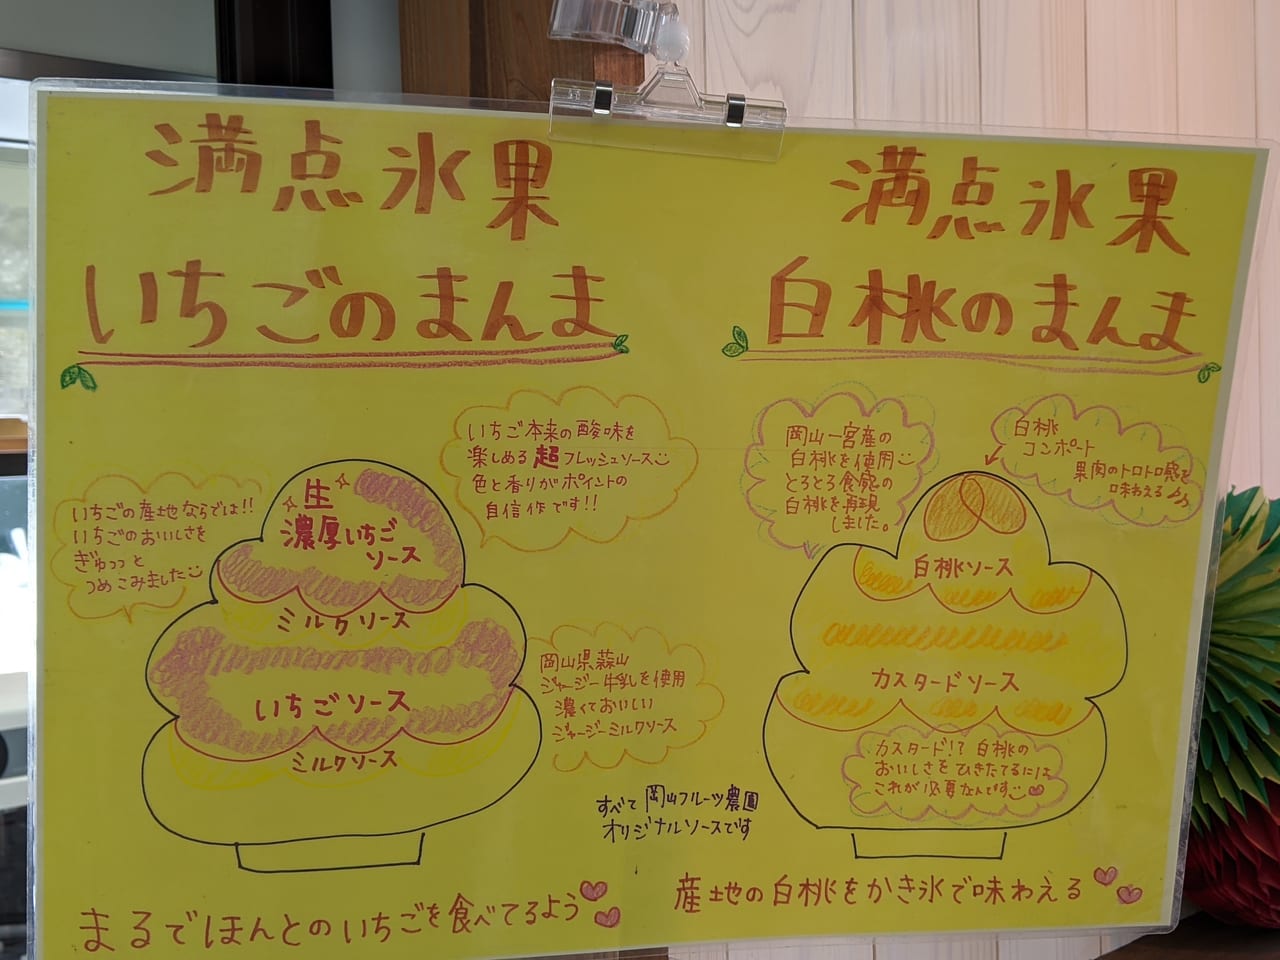 満点氷果
いちごのまんま
いちごの産地ならでは!!
いちごのおいしさを
ぎゅっっと
つめこみました
いちご本来の酸味を
楽しめる超フレッシュソース
色と香りがポイントの
自信作です!!
生
濃厚いちご
ソース
ミルクソース
いちごソース
ミルクソース
岡山県蒜山
ジャージー牛乳を使用
濃くておいしい
ジャージーミルクソース
まるでほんとのいちごを食べてるよう
すべて岡山フルーツ農園
オリジナルソースです
満点氷果
白桃のまんま
岡山一宮産の
白桃を使用
とろとろ食感の
白桃を再現
しました。
白桃
コンポート
果肉のトロトロ感を
味わえる♪♪
白桃ソース
カスタードソース
カスタード!?白桃の
おいしさをひきたてるには
これが必要なんです
産地の白桃をかき氷で味わえる